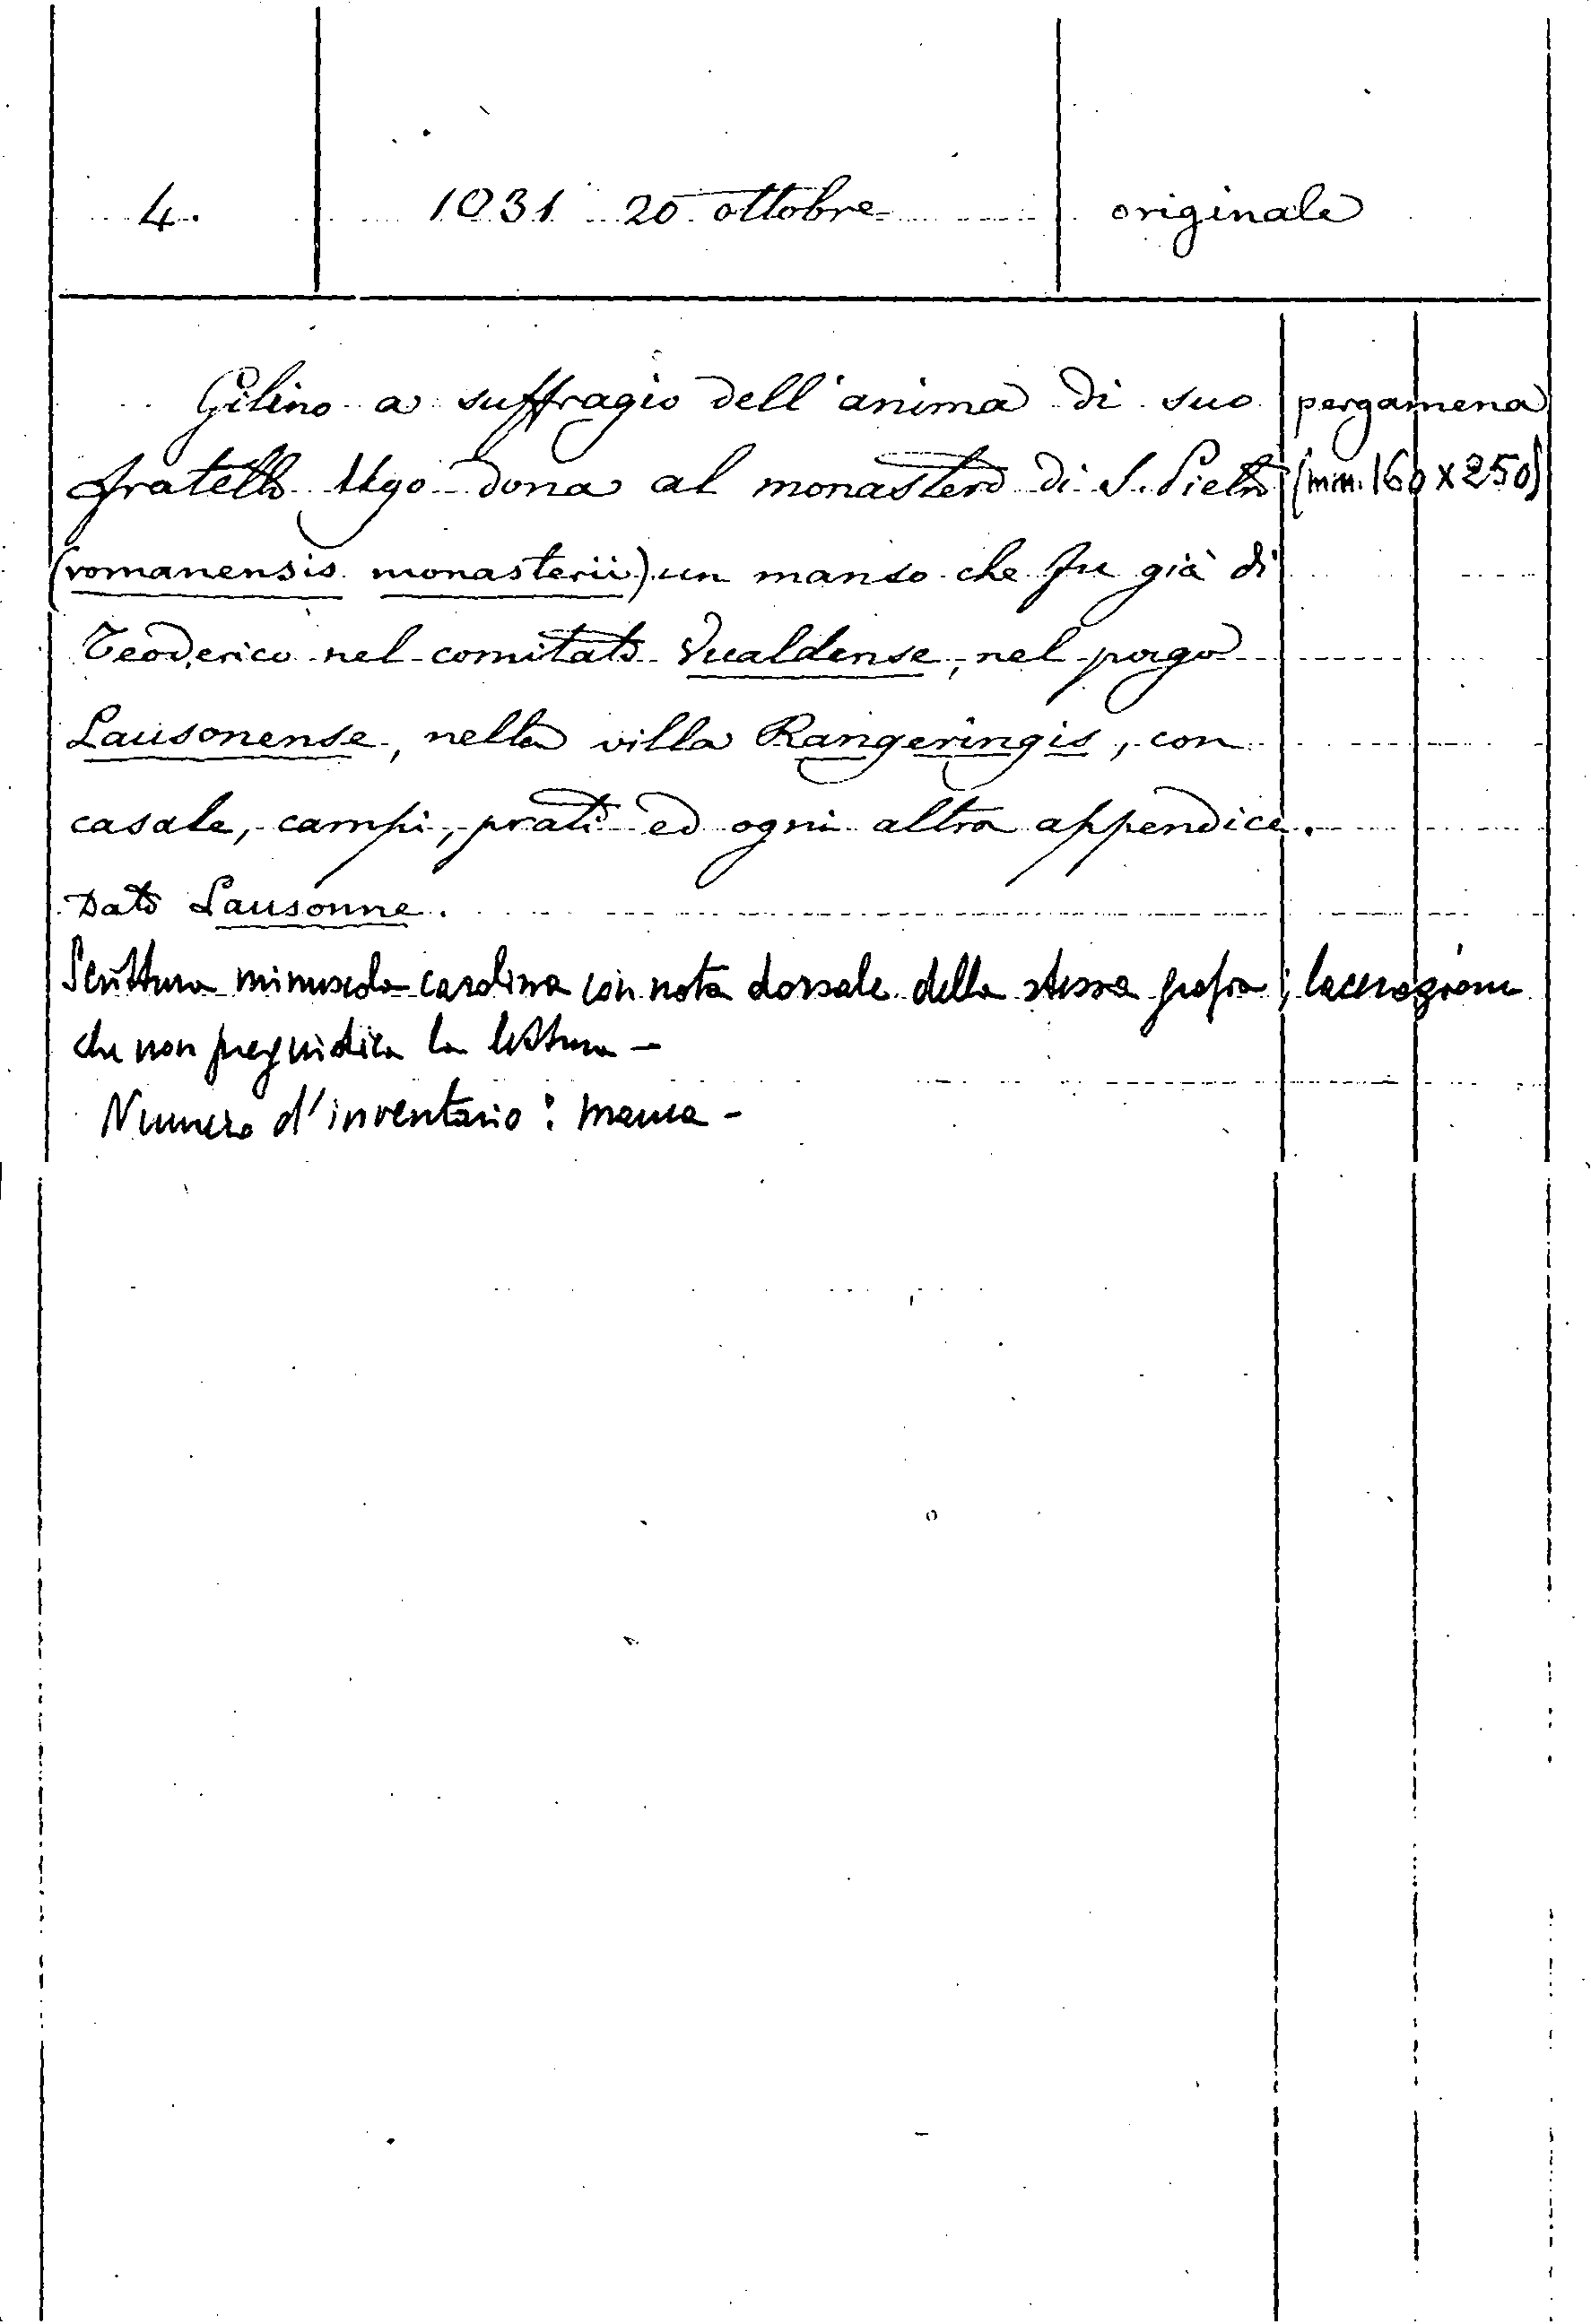 4. 1031 20 ottobre originale
Gilino a suffragio dell'anima di suo pergamena
fratello Ugo dona al monastero di S. Pietro (mm. 160 x 250)
(romanensis monasterii) un manso che fu già di
Teoderico nel comitato Vualdense, nel pago
Lausonense, nella villa Rangeringis, con
casale, campi, prati ed ogni altra appendice.
Dato Lausonne.
Scrittura minuscola carolina con nota dorsale della stessa grafia; lacerazione
che non pregiudica la lettura -
Numero d'inventario: manca -